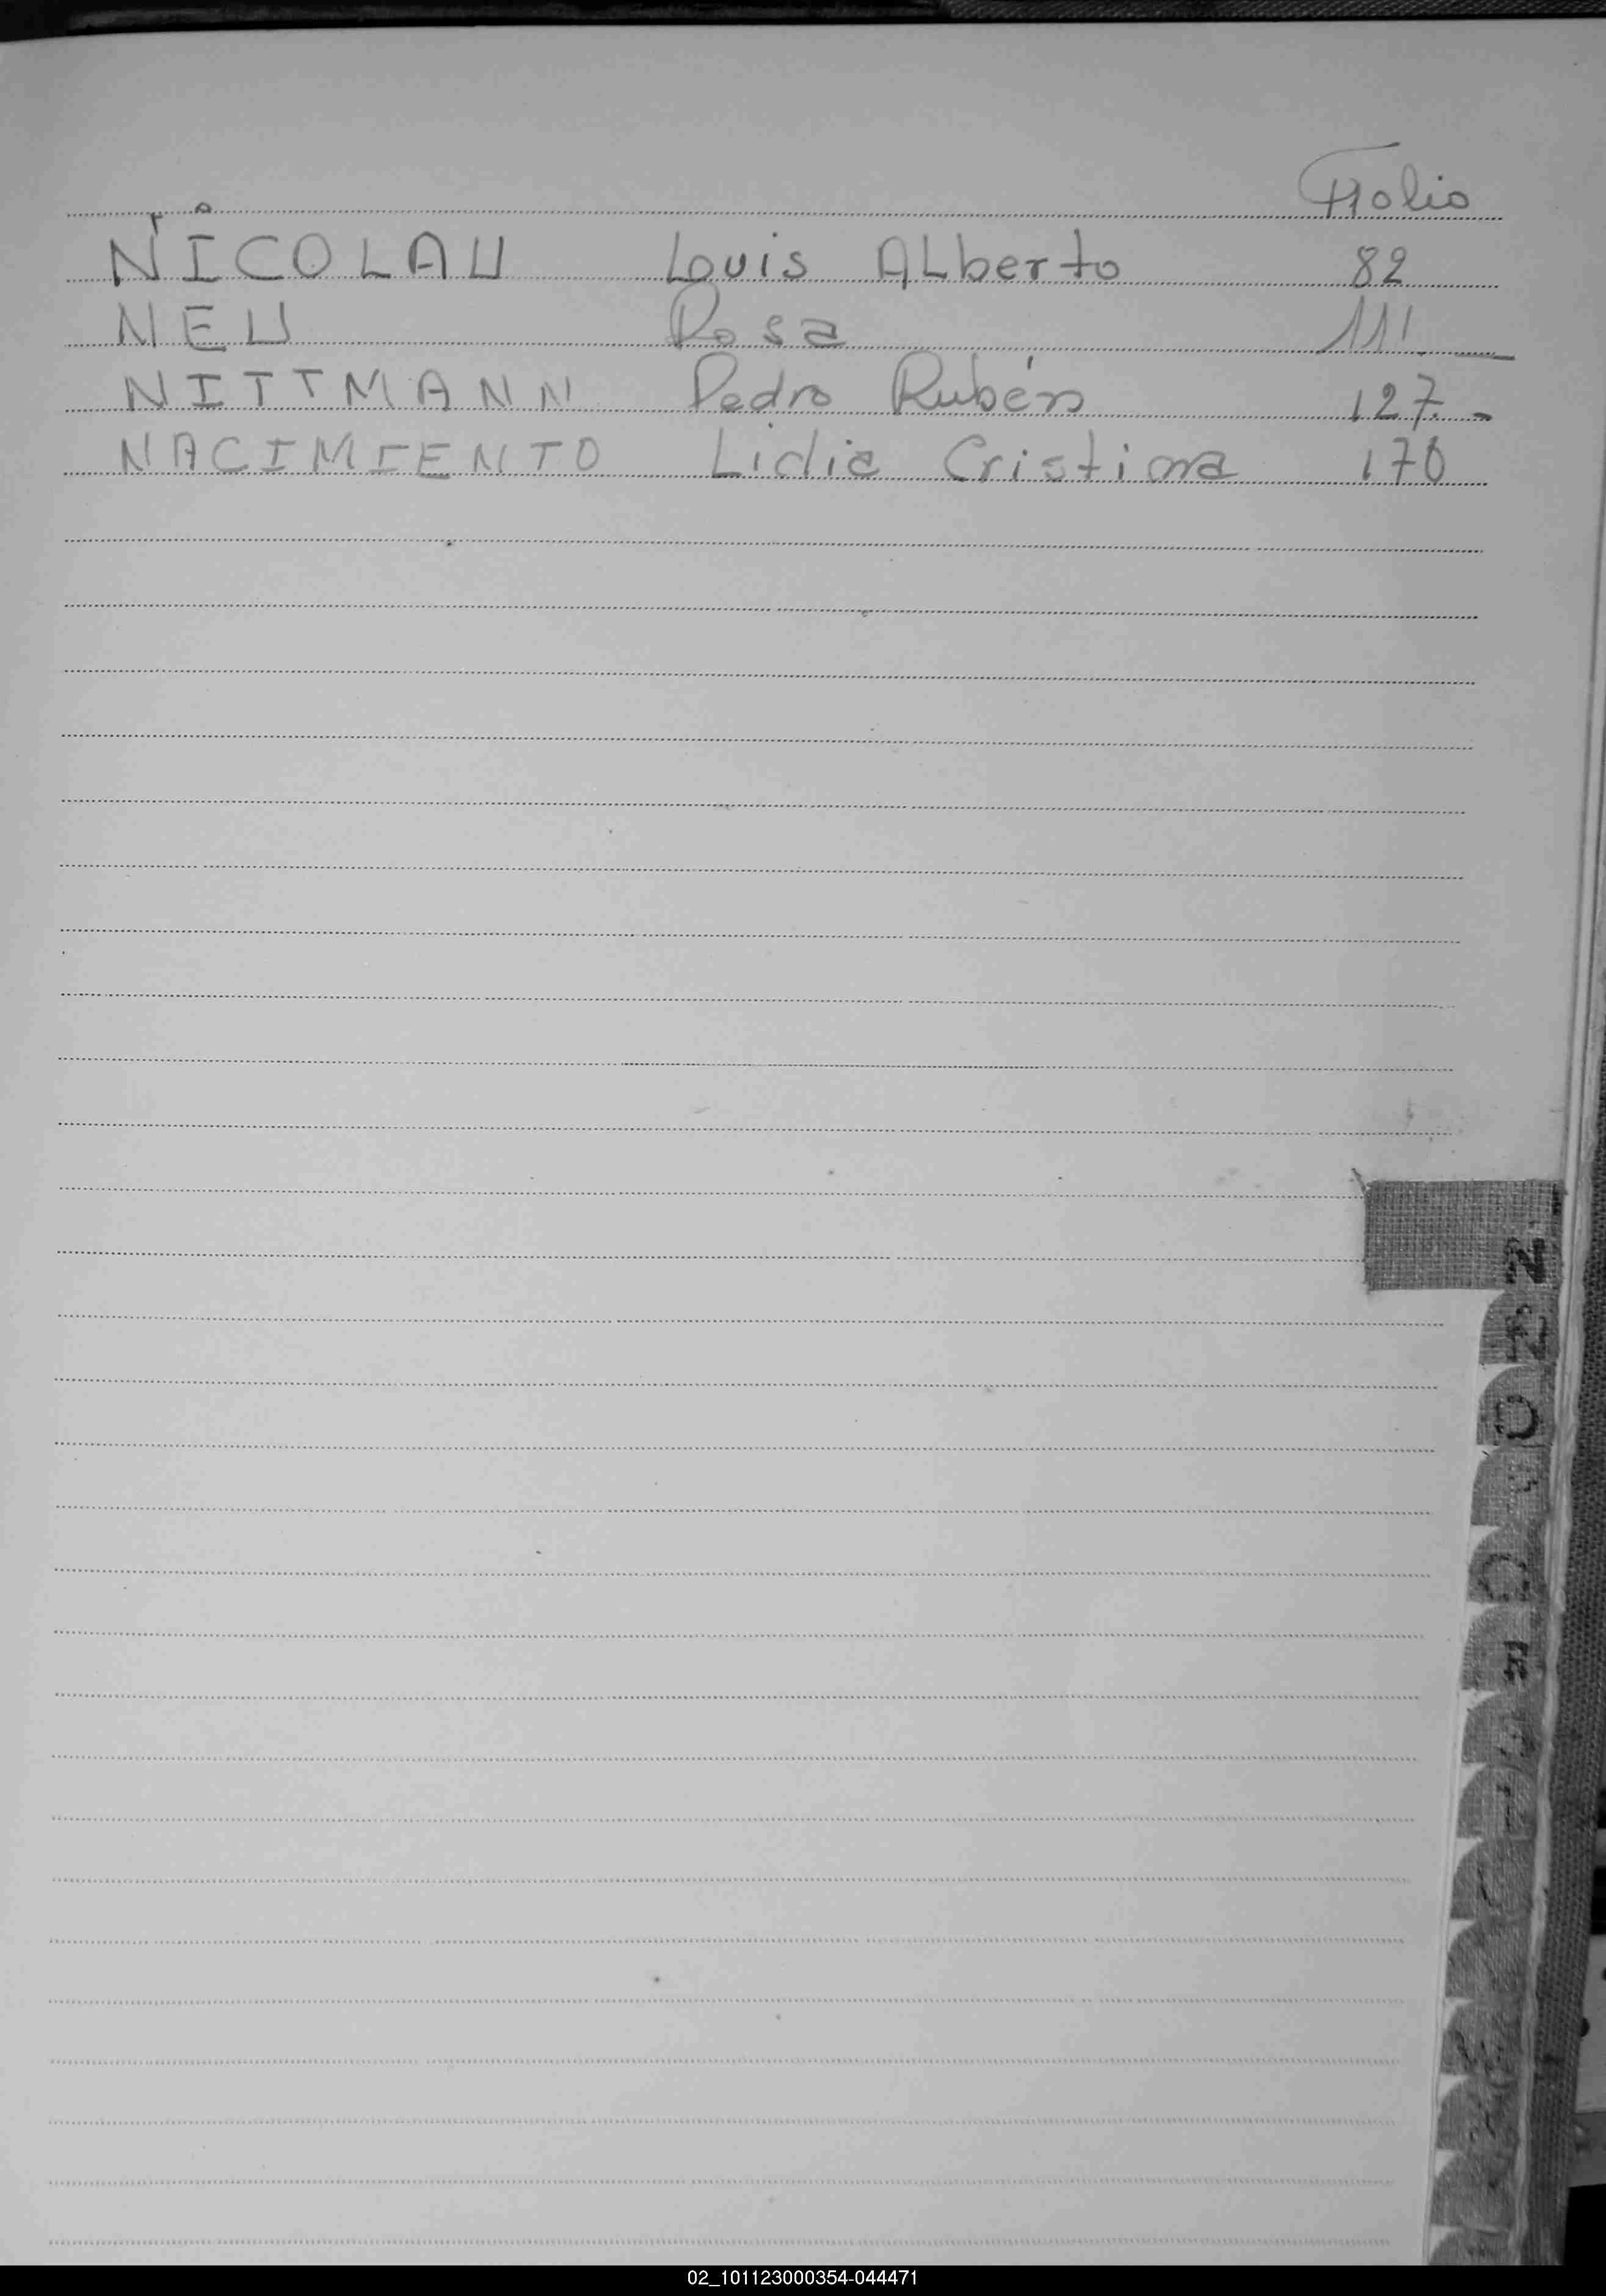 Folio
NICOLAU Louis ALberto 82
NEU Rosa 111
NITTMANN Pedro Rubén 127.-
NACIMIENTO Lidia Cristina 170
N
Ñ
O
Q
R
T
02_101123000354-044471